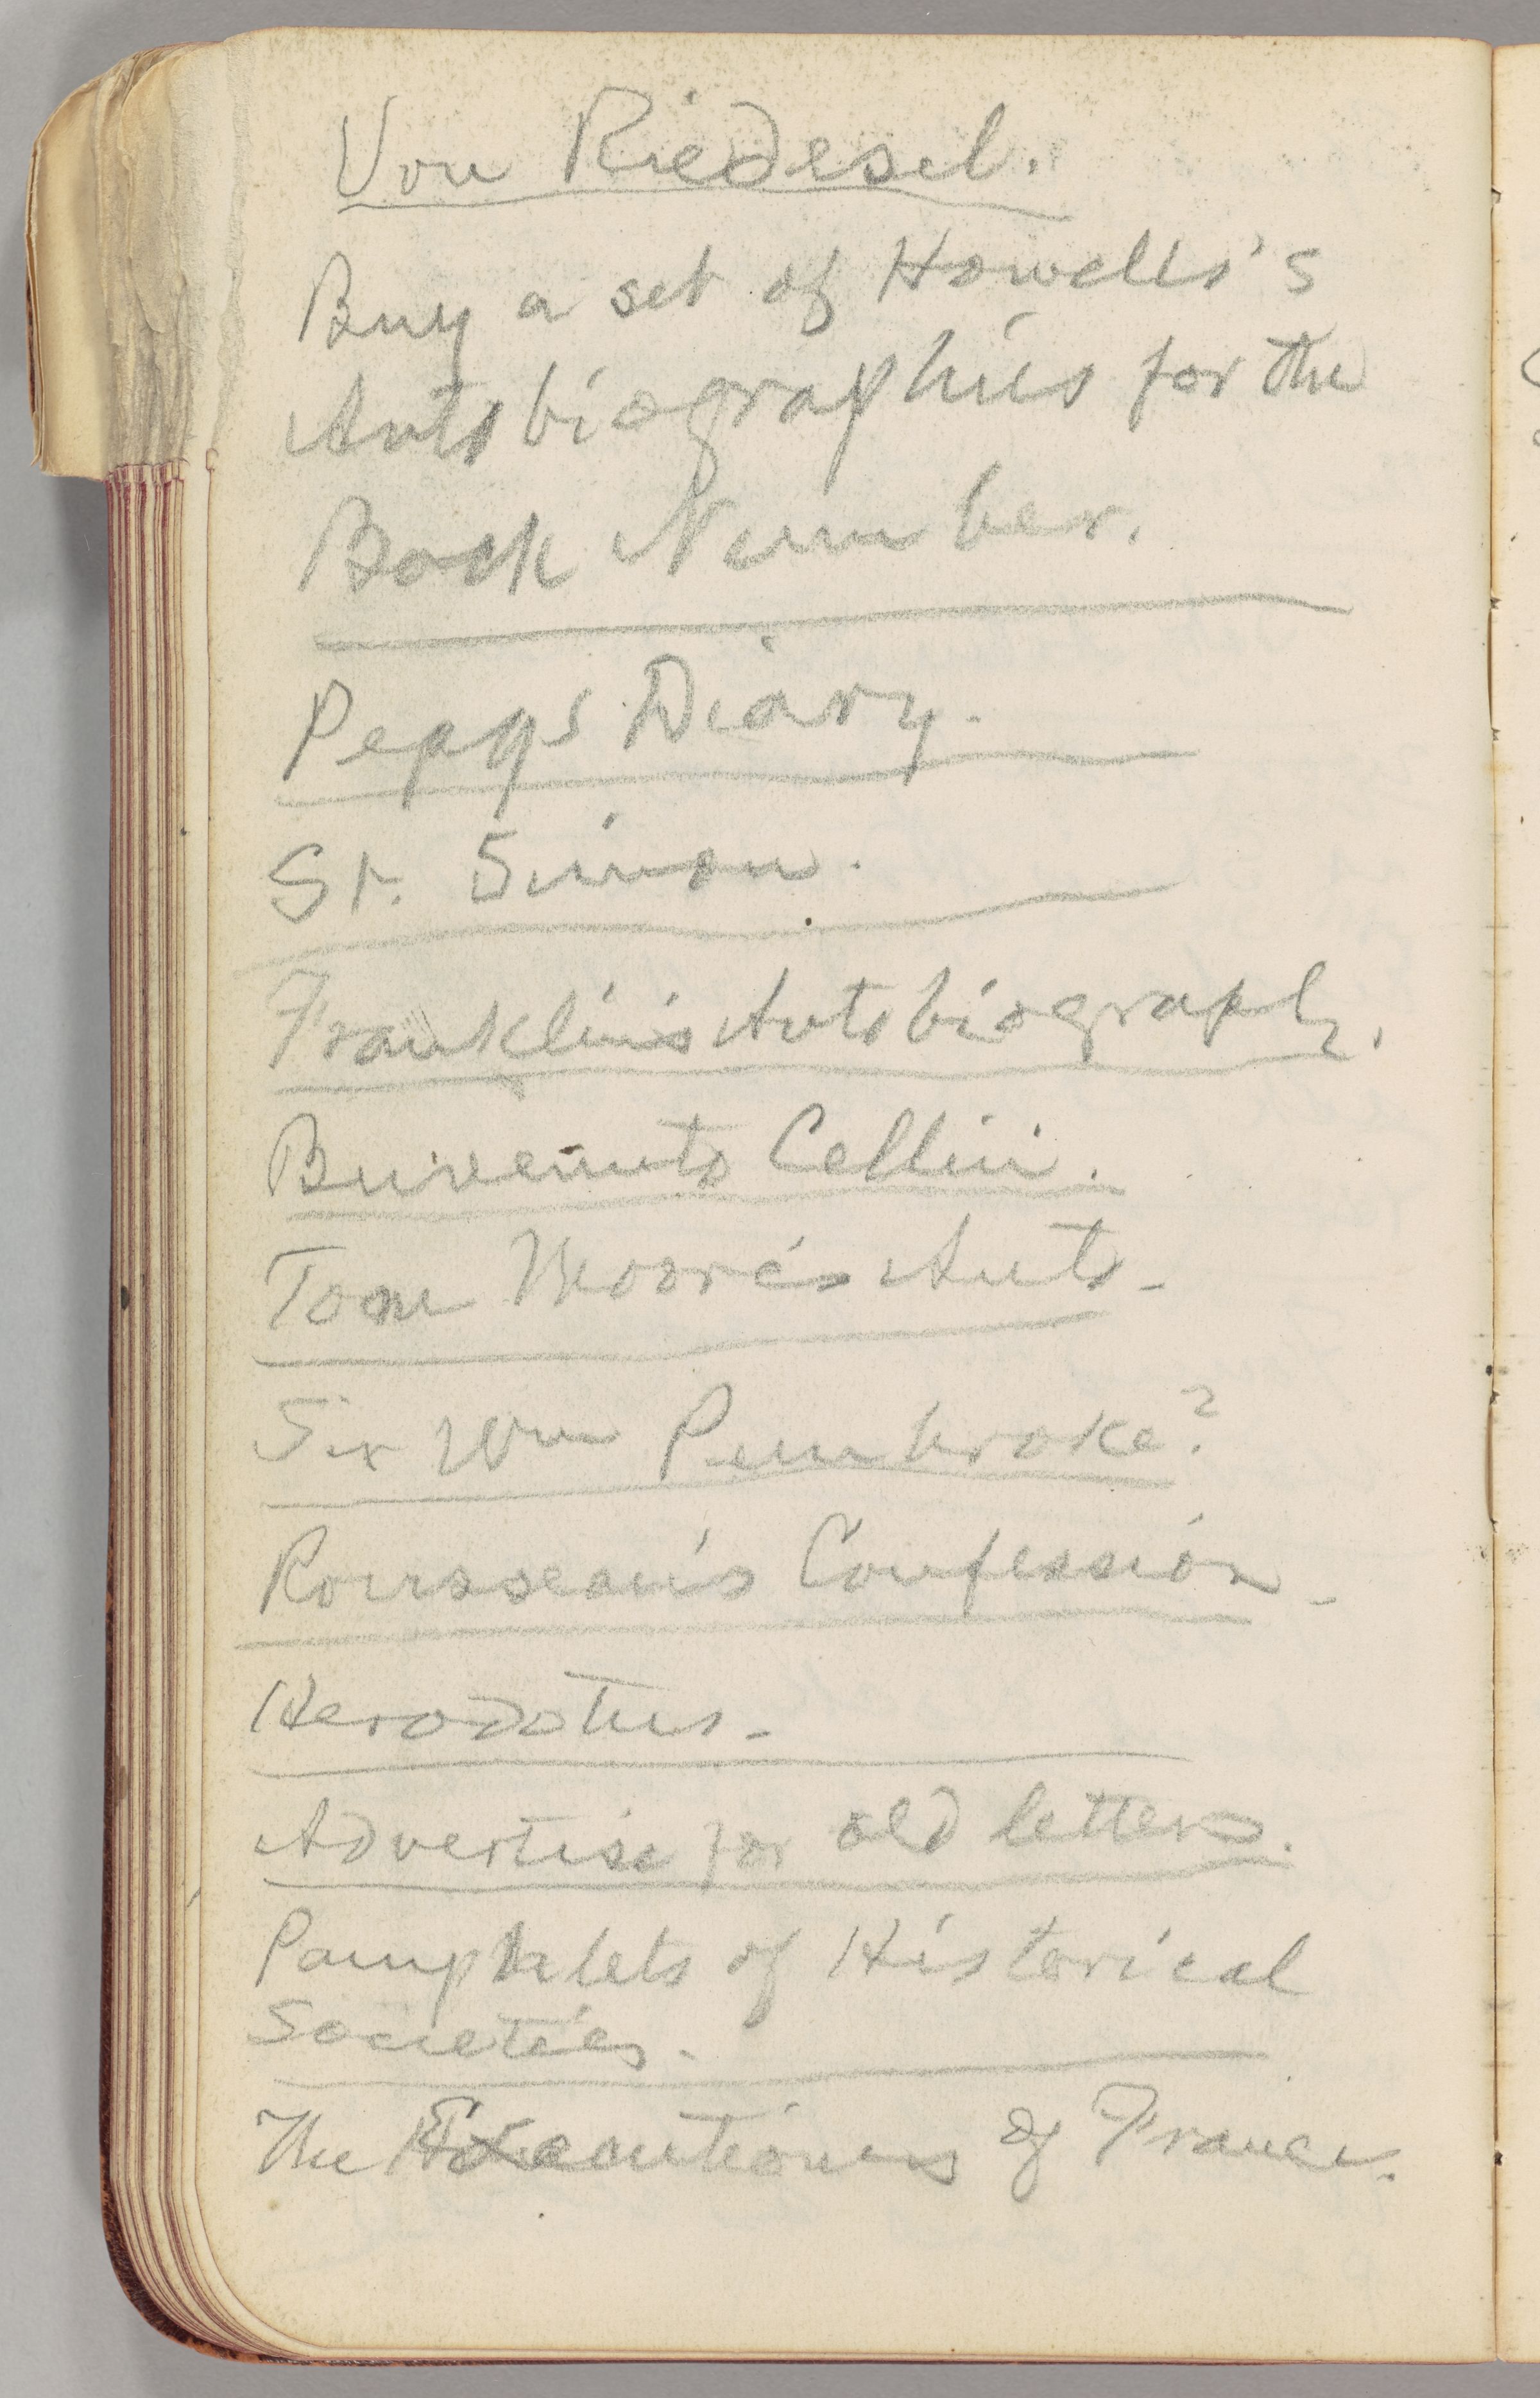 Von Riedesel.
Buy a set of Howells's
Autobiographies for the
Book Number.
Pepys Diary.
St. Simon.
Franklin's Autobiography.
Benvenuto Cellini.
Tom Moore's Auto-
Sir Wm Pembroke?
Rousseau's Confession-
Herodotus-
Advertise for old letters.
Pamphlets of Historical
Societies-
The Executioners of France.